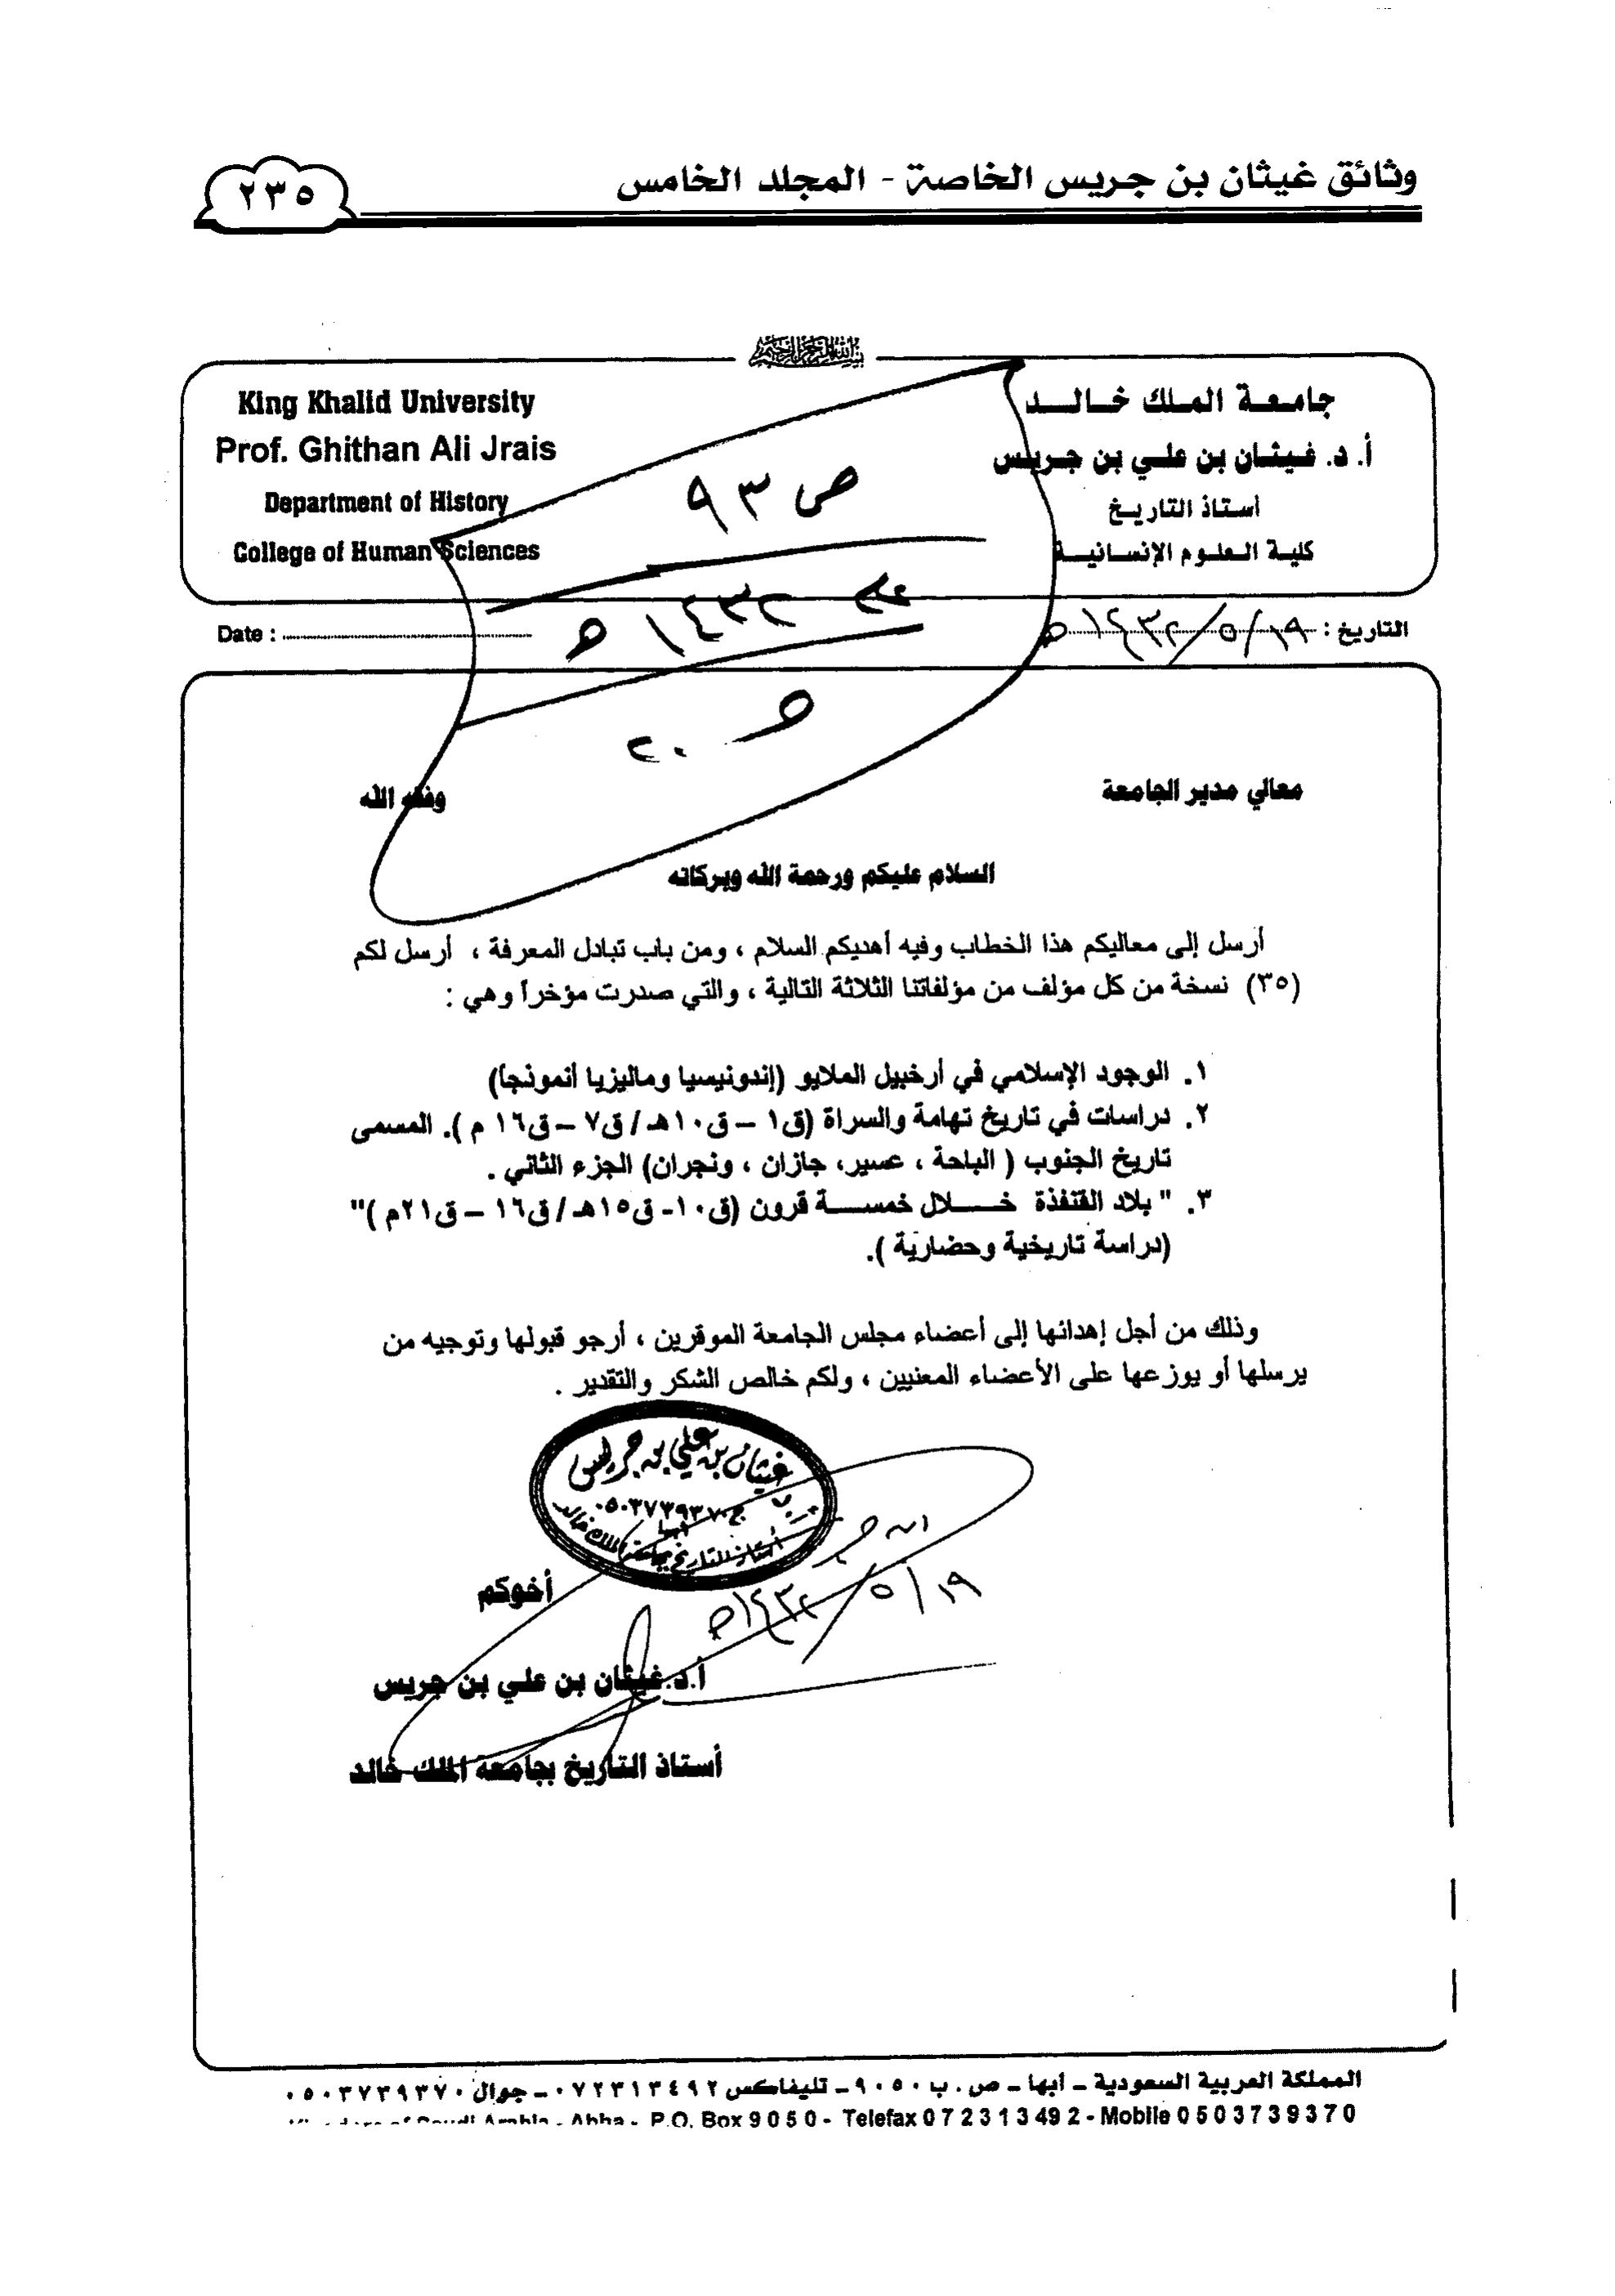 وثائق غيثان بن جريس الخاصة - المجلد الخامس
٢٣٥
بسم الله الرحمن الرحيم
جامعة الملك خالد
أ. د. غيثان بن علي بن جريس
أستاذ التاريخ
كلية العلوم الإنسانية
King Khalid University
Prof. Ghithan Ali Jrais
Department of History
College of Human Sciences
ص ٩٣
عام ١٤٣٢ هـ
التاريخ : ١٩/٥/١٤٣٢هـ
Date :
معالي مدير الجامعة
وفقه الله
السلام عليكم ورحمة الله وبركاته
أرسل إلى معاليكم هذا الخطاب وفيه أهديكم السلام ، ومن باب تبادل المعرفة ، أرسل لكم
(٣٥) نسخة من كل مؤلف من مؤلفاتنا الثلاثة التالية ، والتي صدرت مؤخراً وهي :
١. الوجود الإسلامي في أرخبيل الملايو (إندونيسيا وماليزيا أنموذجاً)
٢. دراسات في تاريخ تهامة والسراة (ق١ – ق١٠هـ / ق٧ – ق١٦ م ). المسمى
تاريخ الجنوب ( الباحة ، عسير، جازان ، ونجران) الجزء الثاني .
٣. " بلاد القنفذة خلال خمسة قرون (ق١٠- ق١٥هـ / ق١٦ – ق٢١م )"
(دراسة تاريخية وحضارية ).
وذلك من أجل إهدائها إلى أعضاء مجلس الجامعة الموقرين ، أرجو قبولها وتوجيه من
يرسلها أو يوزعها على الأعضاء المعنيين ، ولكم خالص الشكر والتقدير .
غيثان بن علي بن جريس
ج ٠٥٠٣٧٣٩٣٧٠
أبها
أستاذ التاريخ بجامعة الملك خالد
١٩/٥/١٤٣٢هـ
أخوكم
أ.د.غيثان بن علي بن جريس
أستاذ التاريخ بجامعة الملك خالد
المملكة العربية السعودية – أبها – ص . ب ٩٠٥٠ – تليفاكس ٠٧٢٣١٣٤٩٢ – جوال ٠٥٠٣٧٣٩٣٧٠
Kingdom of Saudi Arabia - Abha - P.O. Box 9 0 5 0 - Telefax 0 7 2 3 1 3 49 2 - Mobile 0 5 0 3 7 3 9 3 7 0